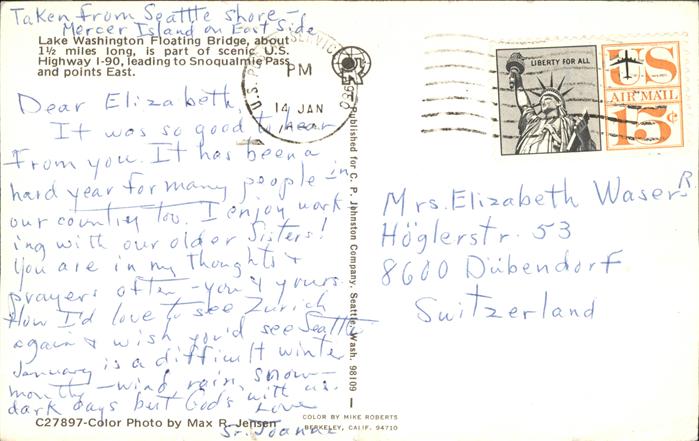 Taken from Seattle shore—
Mercer Island on East Side
Lake Washington Floating Bridge, about
1½ miles long, is part of scenic U.S.
Highway I-90, leading to Snoqualmie Pass
and points East.
Dear Elizabeth,
It was so good to hear
from you. It has been a
hard year for many people in
our country too. I enjoy work-
ing with our older Sisters!
You are in my thoughts &
prayers often—you & yours.
How I'd love to see Zurich
again & wish you'd see Seattle
January is a difficult winter
month—wind, rain, snow—
dark days but God's with us.
Love
Sr. Joanne
C27897-Color Photo by Max R. Jensen
Published for C. P. Johnston Company, Seattle, Wash. 98109
COLOR BY MIKE ROBERTS
BERKELEY, CALIF. 94710
PM
14 JAN
LIBERTY FOR ALL
US
AIR MAIL
15¢
Mrs. Elizabeth Waser
Höglerstr. 53
8600 Dübendorf
Switzerland